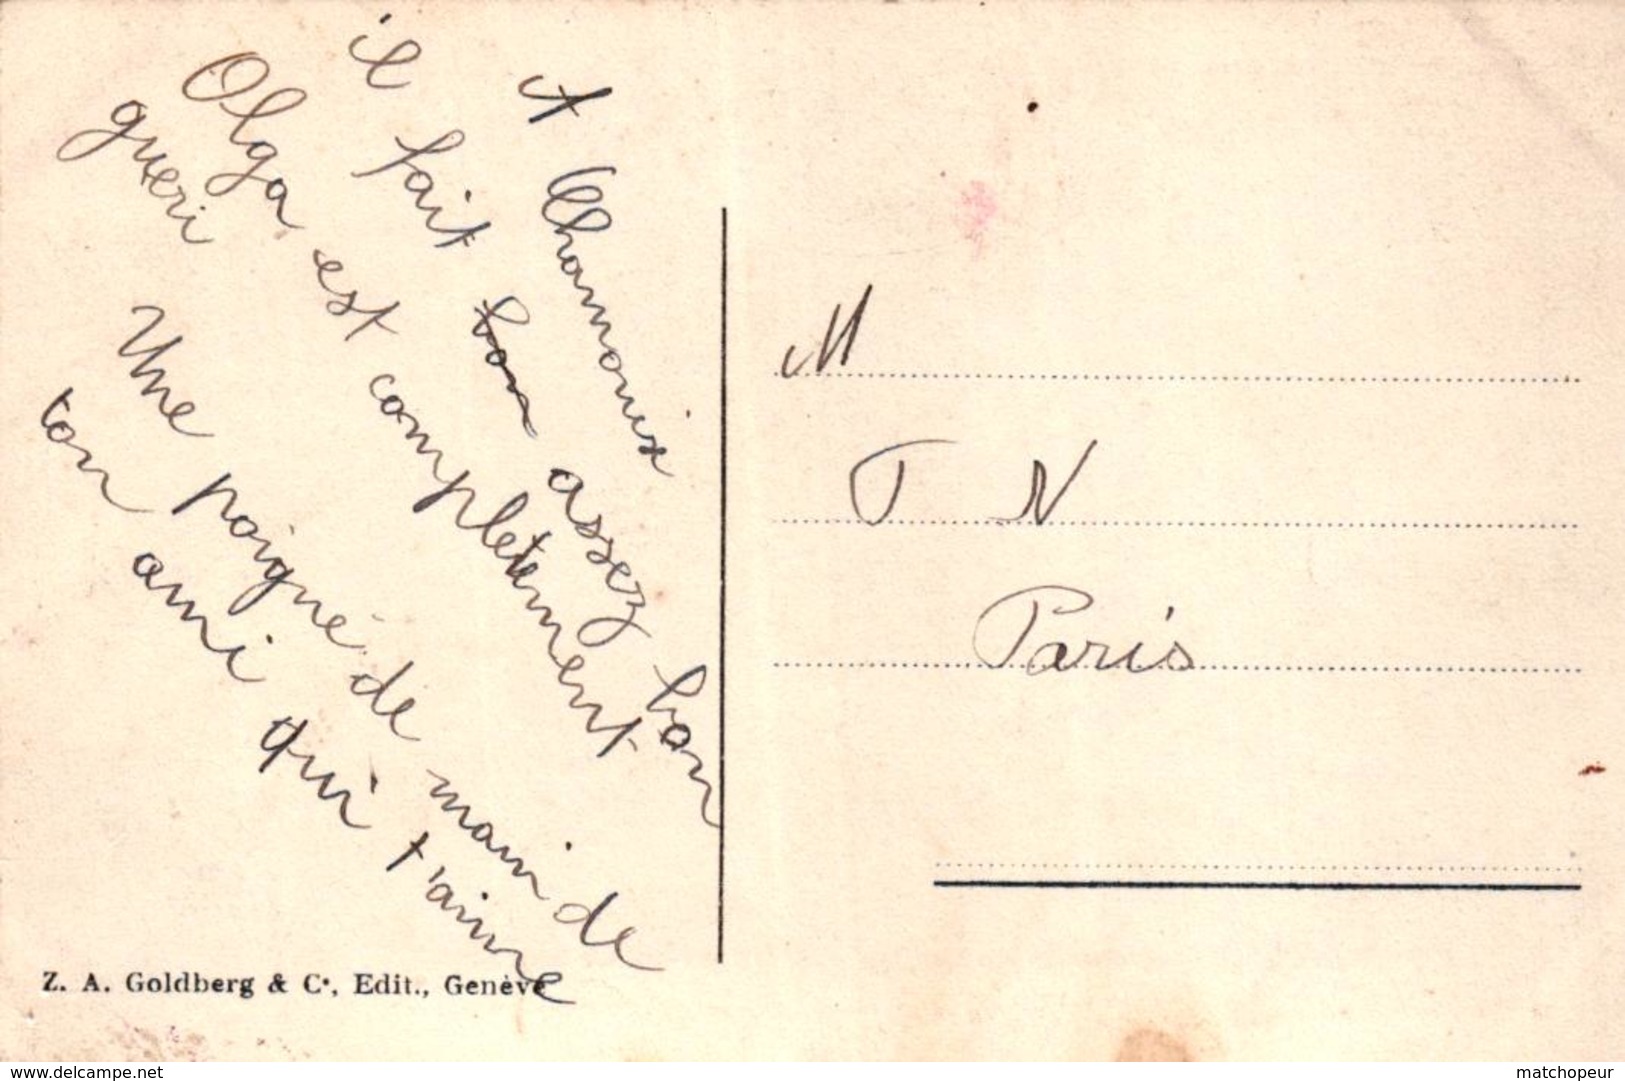 A Chamonix
il fait bon assez bon
Olga est completement
gueri
Une poigné de main de
ton ami qui t'aime
Z. A. Goldberg & Cº, Edit., Genève
M
T N
Paris
www.delcampe.net
matchopeur